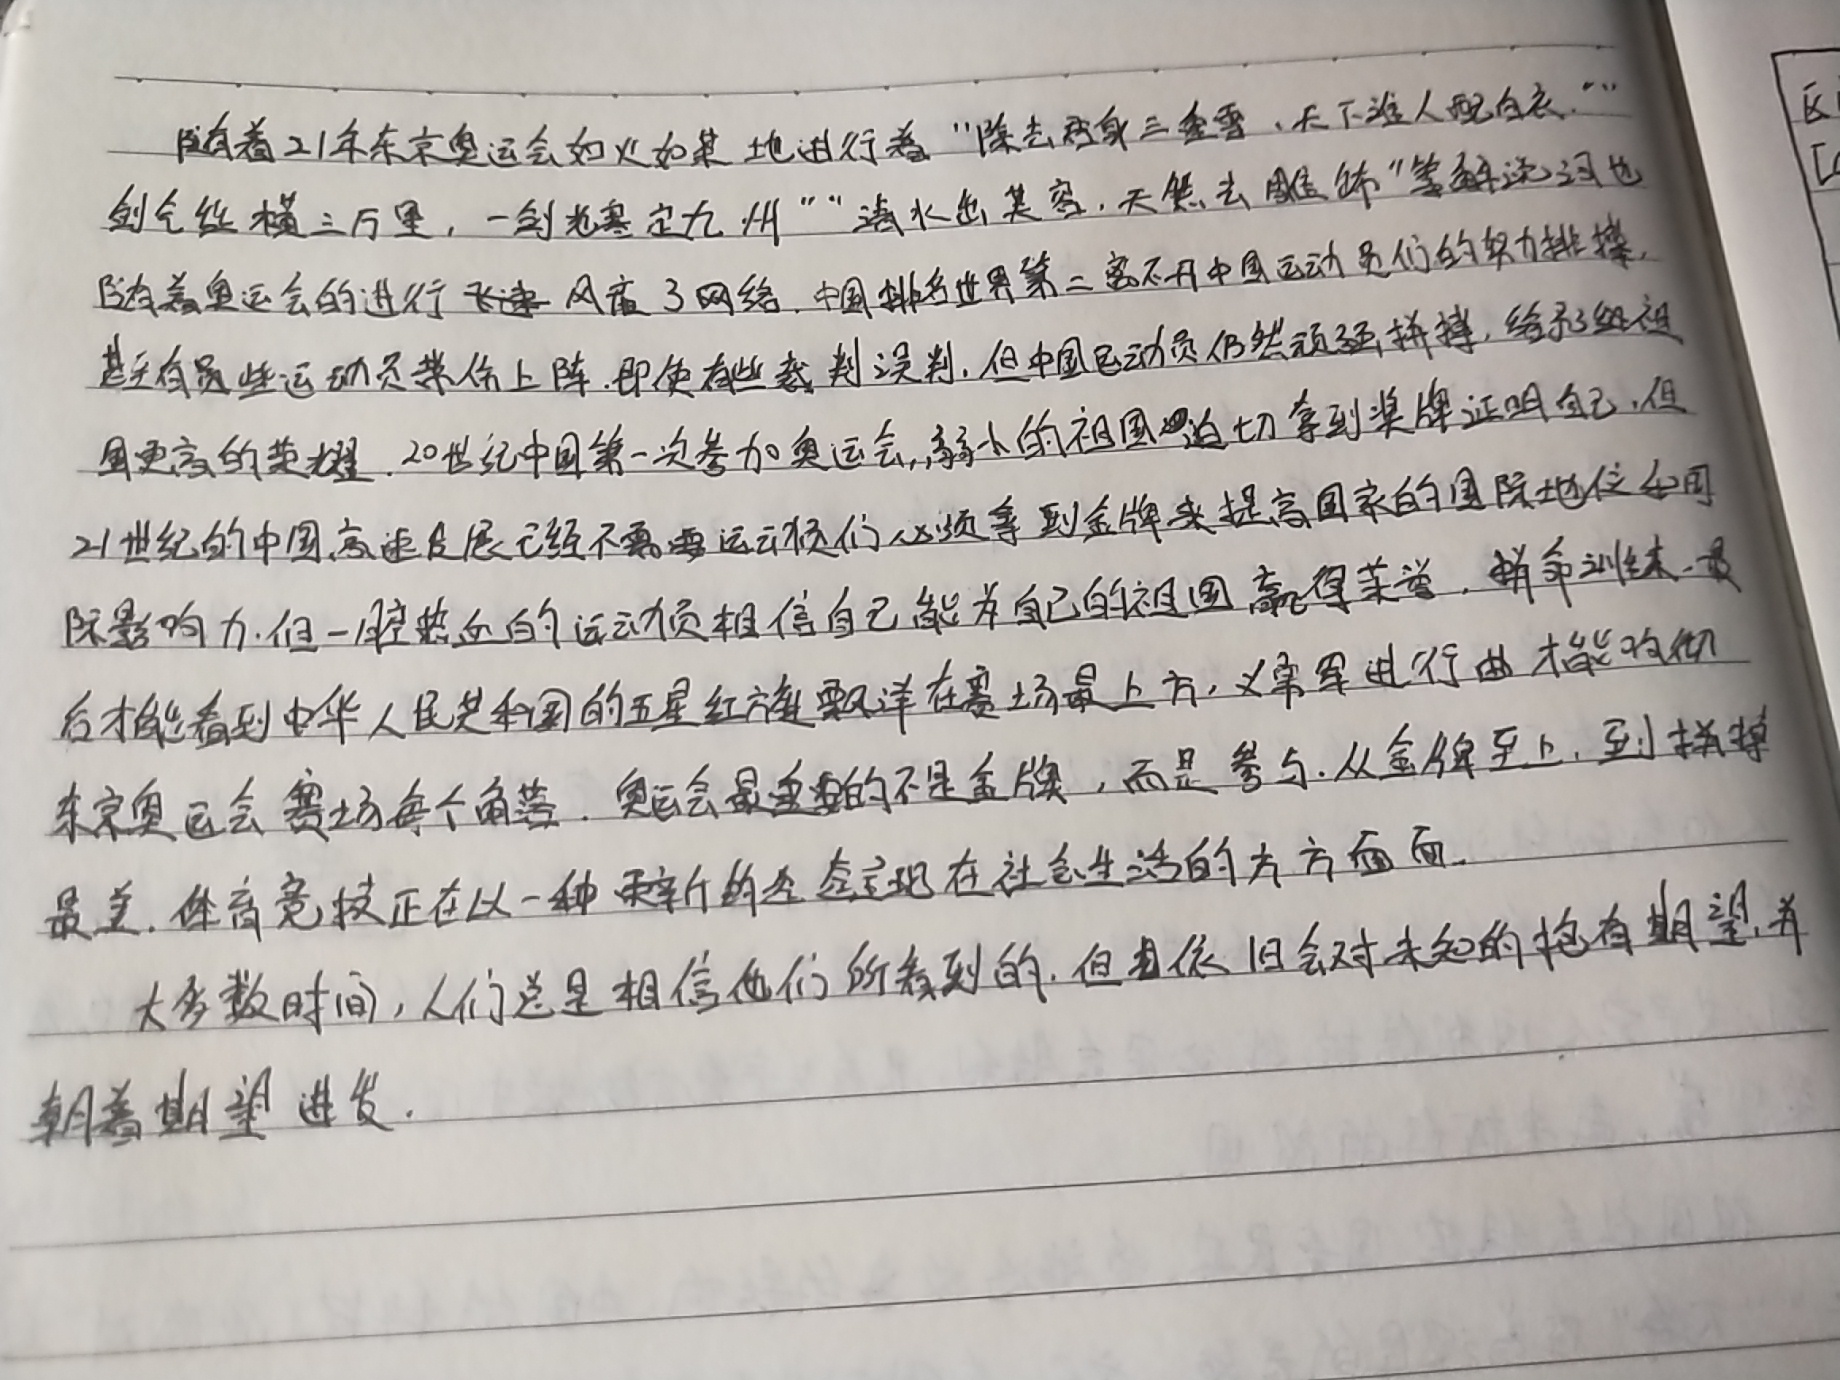 随着21年东京奥运会如火如荼地进行着"除去君身三重雪,天下谁人配白衣.""
剑气纵横三万里,一剑光寒定九州""清水出芙蓉.天然去雕饰"等解说词也
随着奥运会的进行风靡了网络.中国排名世界第二离不开中国运动员们的努力拼搏,
甚至有些运动员带伤上阵.即使有些裁判误判.但中国运动员仍然顽强拼搏.给予祖
国更高的荣耀.20世纪中国第一次参加奥运会,弱小的祖国迫切拿到奖牌证明自己.但
21世纪的中国高速发展已经不需要运动员们必须拿到金牌来提高国家的国际地位和国
际影响力.但一腔热血的运动员相信自己能为自己的祖国赢得荣誉.拼命训练.最
后才能看到中华人民共和国的五星红旗飘洋在赛场最上方,义勇军进行曲才能响彻
东京奥运会赛场每个角落.奥运会最重要的不是金牌,而是参与.从金牌至上.到拼搏
最美.体育竞技正在以一种更新的姿态呈现在社会生活的方方面面.
大多数时间,人们总是相信他们所看到的.但且依旧会对未知的抱有期望,并
朝着期望进发.